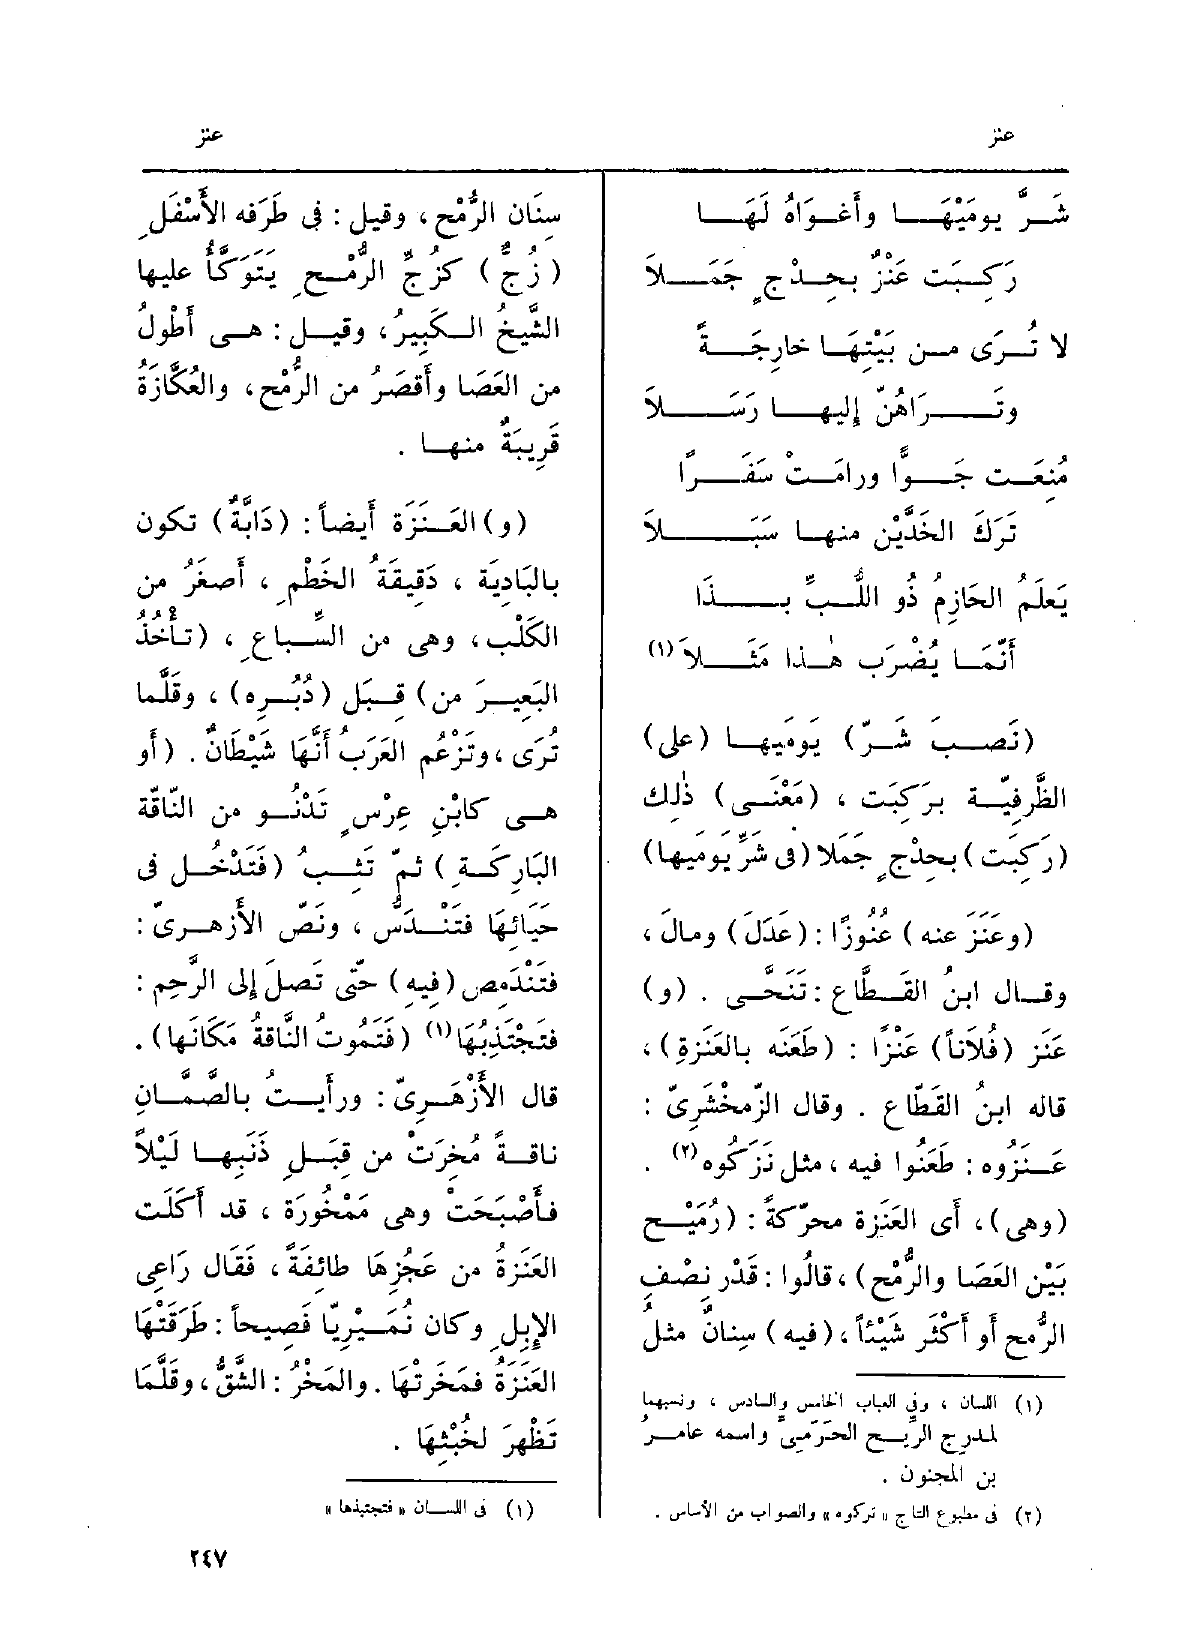 عنز
عنز
شَـــرَّ يوميْهَـــا وأَغــواهُ لَهَـــا
رَكِــبَت عَنْزٌ بحِــدْجٍ جَمَــلاَ
لا تُــرَى مــن بَيْتِهَــا خارِجَــةً
وتَـــرَاهُنّ إليهــا رَسَـــلاَ
مُنِعَــت جَــوًّا ورامَــتْ سَفَــرًا
تَرَكَ الخَدَّيْن منهــا سَبَـــلاَ
يَعلَمُ الحَازِمُ ذُو اللُّــبِّ بــذَا
أَنّمَــا يُضْرَب هٰــذا مَثَــلاَ(١)
(نَصــبَ شَــرّ) يَومَيهــا (على)
الظَّرفِيّــة برَكِبَت ، (مَعْنَــى) ذٰلك
(رَكِبَت) بحِدْجٍ جَمَلا (فى شَرِّ يَومَيها)
(وعَنَزَ عنه) عُنُوزًا : (عَدَلَ) ومالَ ،
وقــال ابنُ القَــطَّاع : تَنَحَّــى . (و)
عَنَز (فُلاناً) عَنْزًا : (طَعَنَه بالعَنَزةِ) ،
قاله ابنُ القَطّاع . وقال الزّمخْشَرِىّ :
عَــنزوه : طَعَنُوا فيه ، مثل نَزَكُوه(٢) .
(وهى) ، أى العَنَزة محرّكةً : (رُمَيْــح
بَيْن العَصَا والرُّمْح) ، قالُوا : قَدْر نِصْفِ
الرُّمح أو أكْثَر شَيْئاً ، (فيه) سِنانٌ مثلُ
(١) اللسان ، وفي العباب الخامس والسادس ، ونسبهما
لمدرج الريــح الجَرْمىّ واسمه عامــرُ
بن المجنون .
(٢) فى مطبوع التاج « تركوه » والصواب من الأساس .
سِنَان الرُّمْح ، وقيل : فى طَرَفه الأَسْفَلِ
(زُجٌّ) كزُجِّ الرُّمْــحِ يَتَوَكَّأُ عليها
الشَّيْخُ الــكَبِيرُ ، وقيــل : هــى أَطْولُ
من العَصَا وأَقصَرُ من الرُّمْح ، والعُكَّازَةُ
قَرِيبَةٌ منهــا .
(و) العَــنَزَة أَيضــاً : (دَابَّةٌ) تكون
بالبَادِيَة ، دَقِيقَةُ الخَطْمِ ، أَصغَرُ من
الكَلْب ، وهى من السِّبــاعِ ، (تــأْخُذُ
البَعِيــرَ من) قِــبَل (دُبُرِه) ، وقَلَّما
تُرَى ، وتَزْعُم العَرَبُ أَنَّهَا شَيْطَانٌ . (أو
هــى كابْنِ عِرْسٍ تَدْنُــو من النّاقَة
البَارِكَــةِ) ثمّ تَثِــبُ (فَتَدْخُــل فى
حَيَائِهَا فتَنْــدَسّ ، ونَصّ الأَزْهــرىّ :
فتَنْدَمِص (فيه) حتّى تَصلَ إلى الرَّحِم :
فتَجْتَذِبُهَا(١) (فَتَمُوتُ النَّاقةُ مَكَانَها) .
قال الأَزْهَــرِىّ : ورأَيــتُ بالصَّمَّــانِ
ناقــةً مُخِرَتْ من قِبَــلِ ذَنَبِهــا لَيْلاً
فــأَصْبَحَتْ وهى مَمْخُورَة ، قد أَكَلَت
العَنَزَةُ من عَجُزِهَا طائِفَةً ، فَقَال رَاعِى
الإِبِلِ وكان نُمَــيْرِيًّا فَصِيحاً : طَرَقَتْهَا
العَنَزَةُ فمَخَرتْهَا . والمَخْرُ : الشَّقُّ ، وقَلَّمَا
تَظْهَرَ لخُبْثِهَا .
(١) فى اللســان « فتجتبذها »
٢٤٧